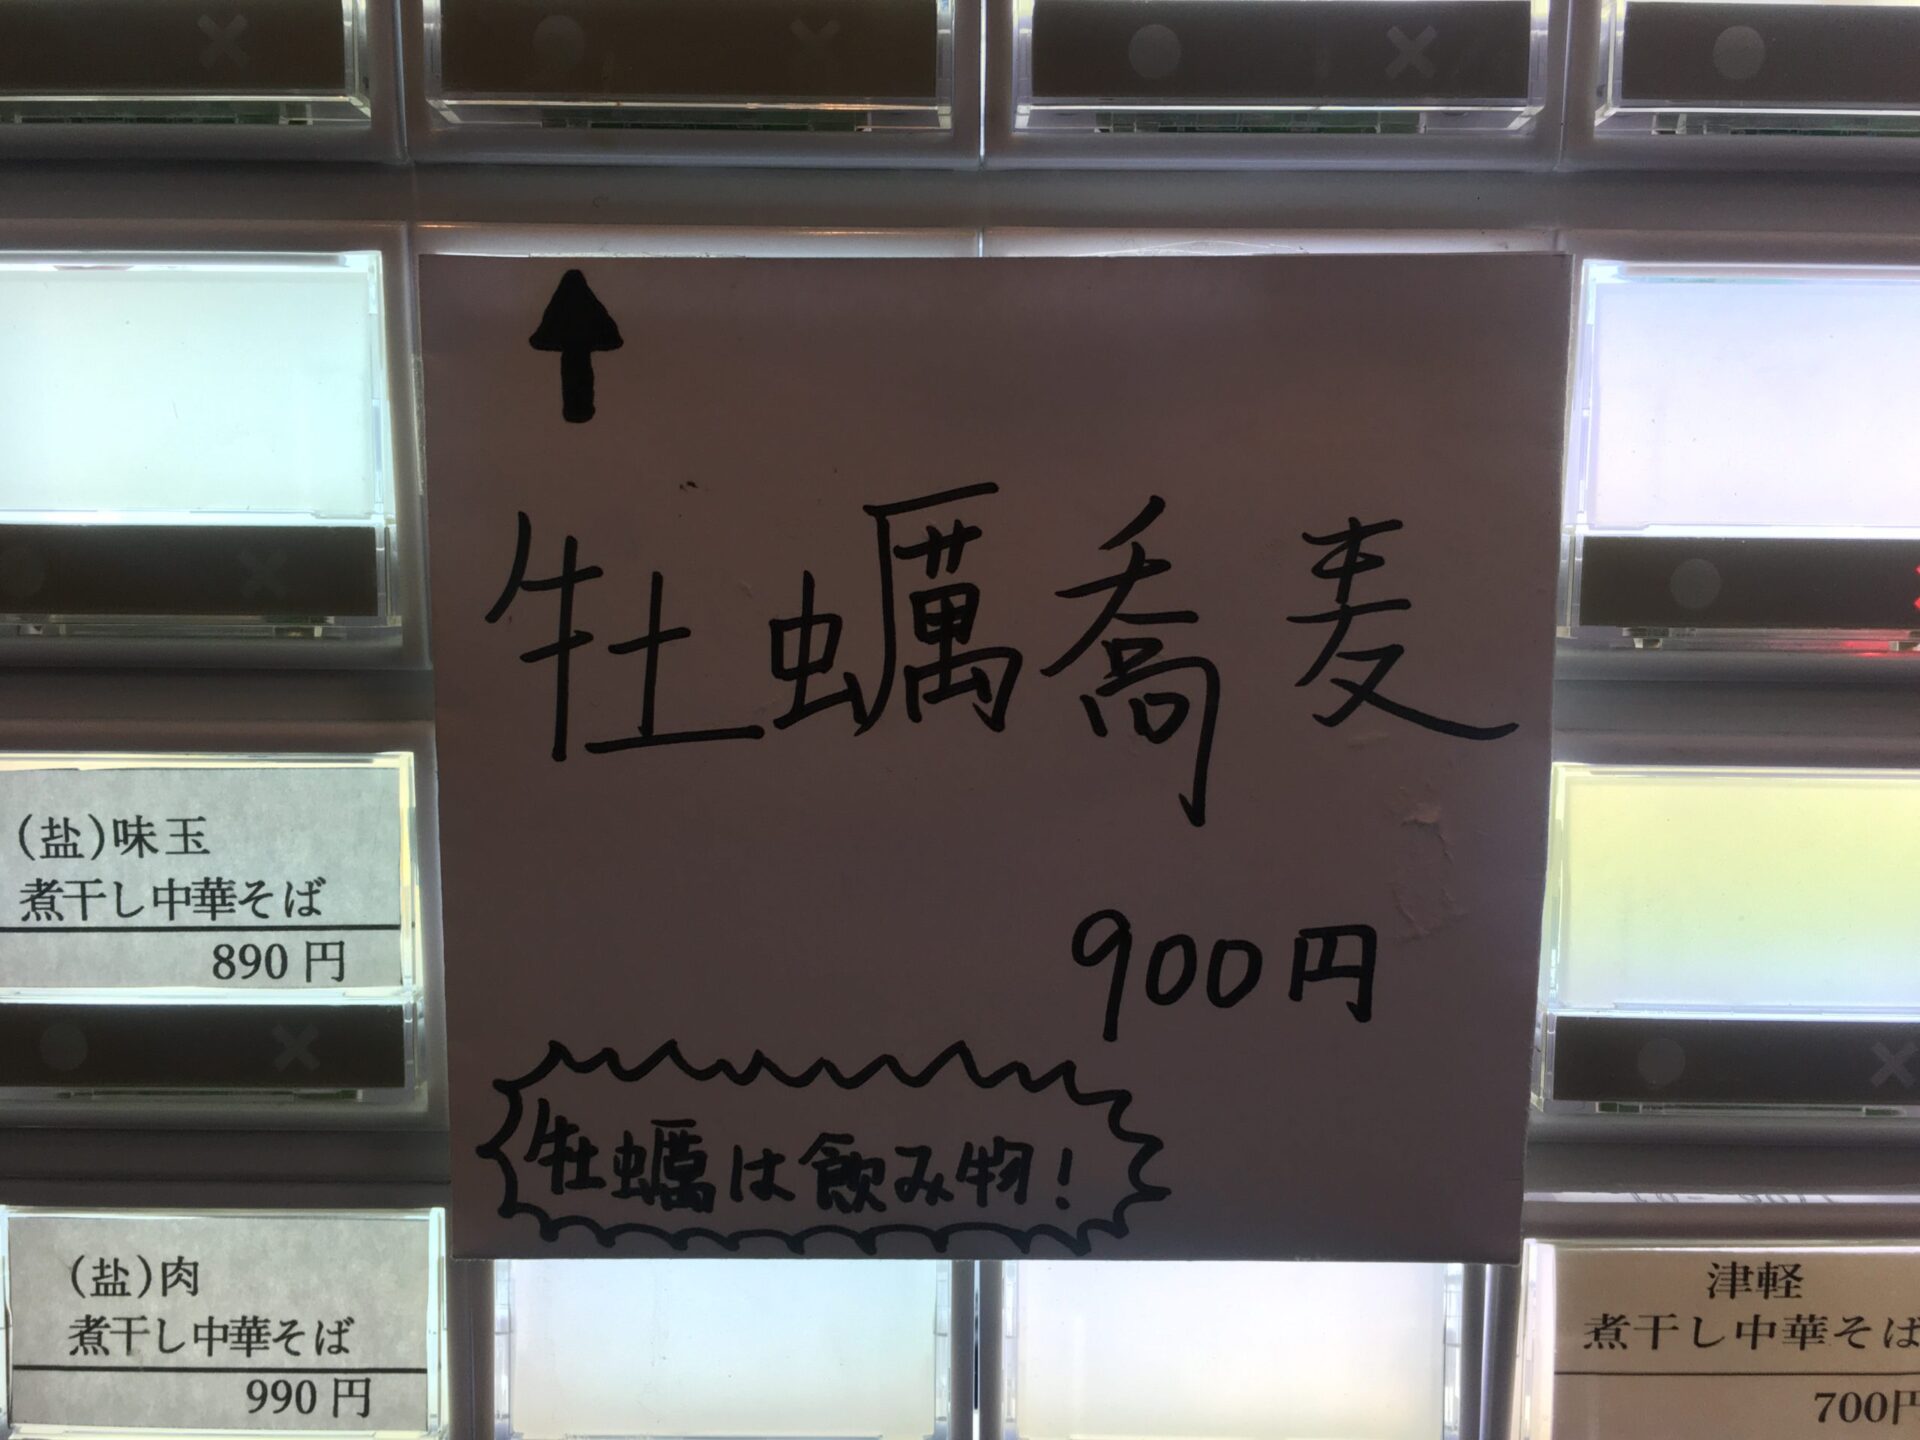 牡蠣蕎麦
900円
牡蠣は飲み物!
(盐)味玉
煮干し中華そば
890円
(盐)肉
煮干し中華そば
990円
津軽
煮干し中華そば
700円